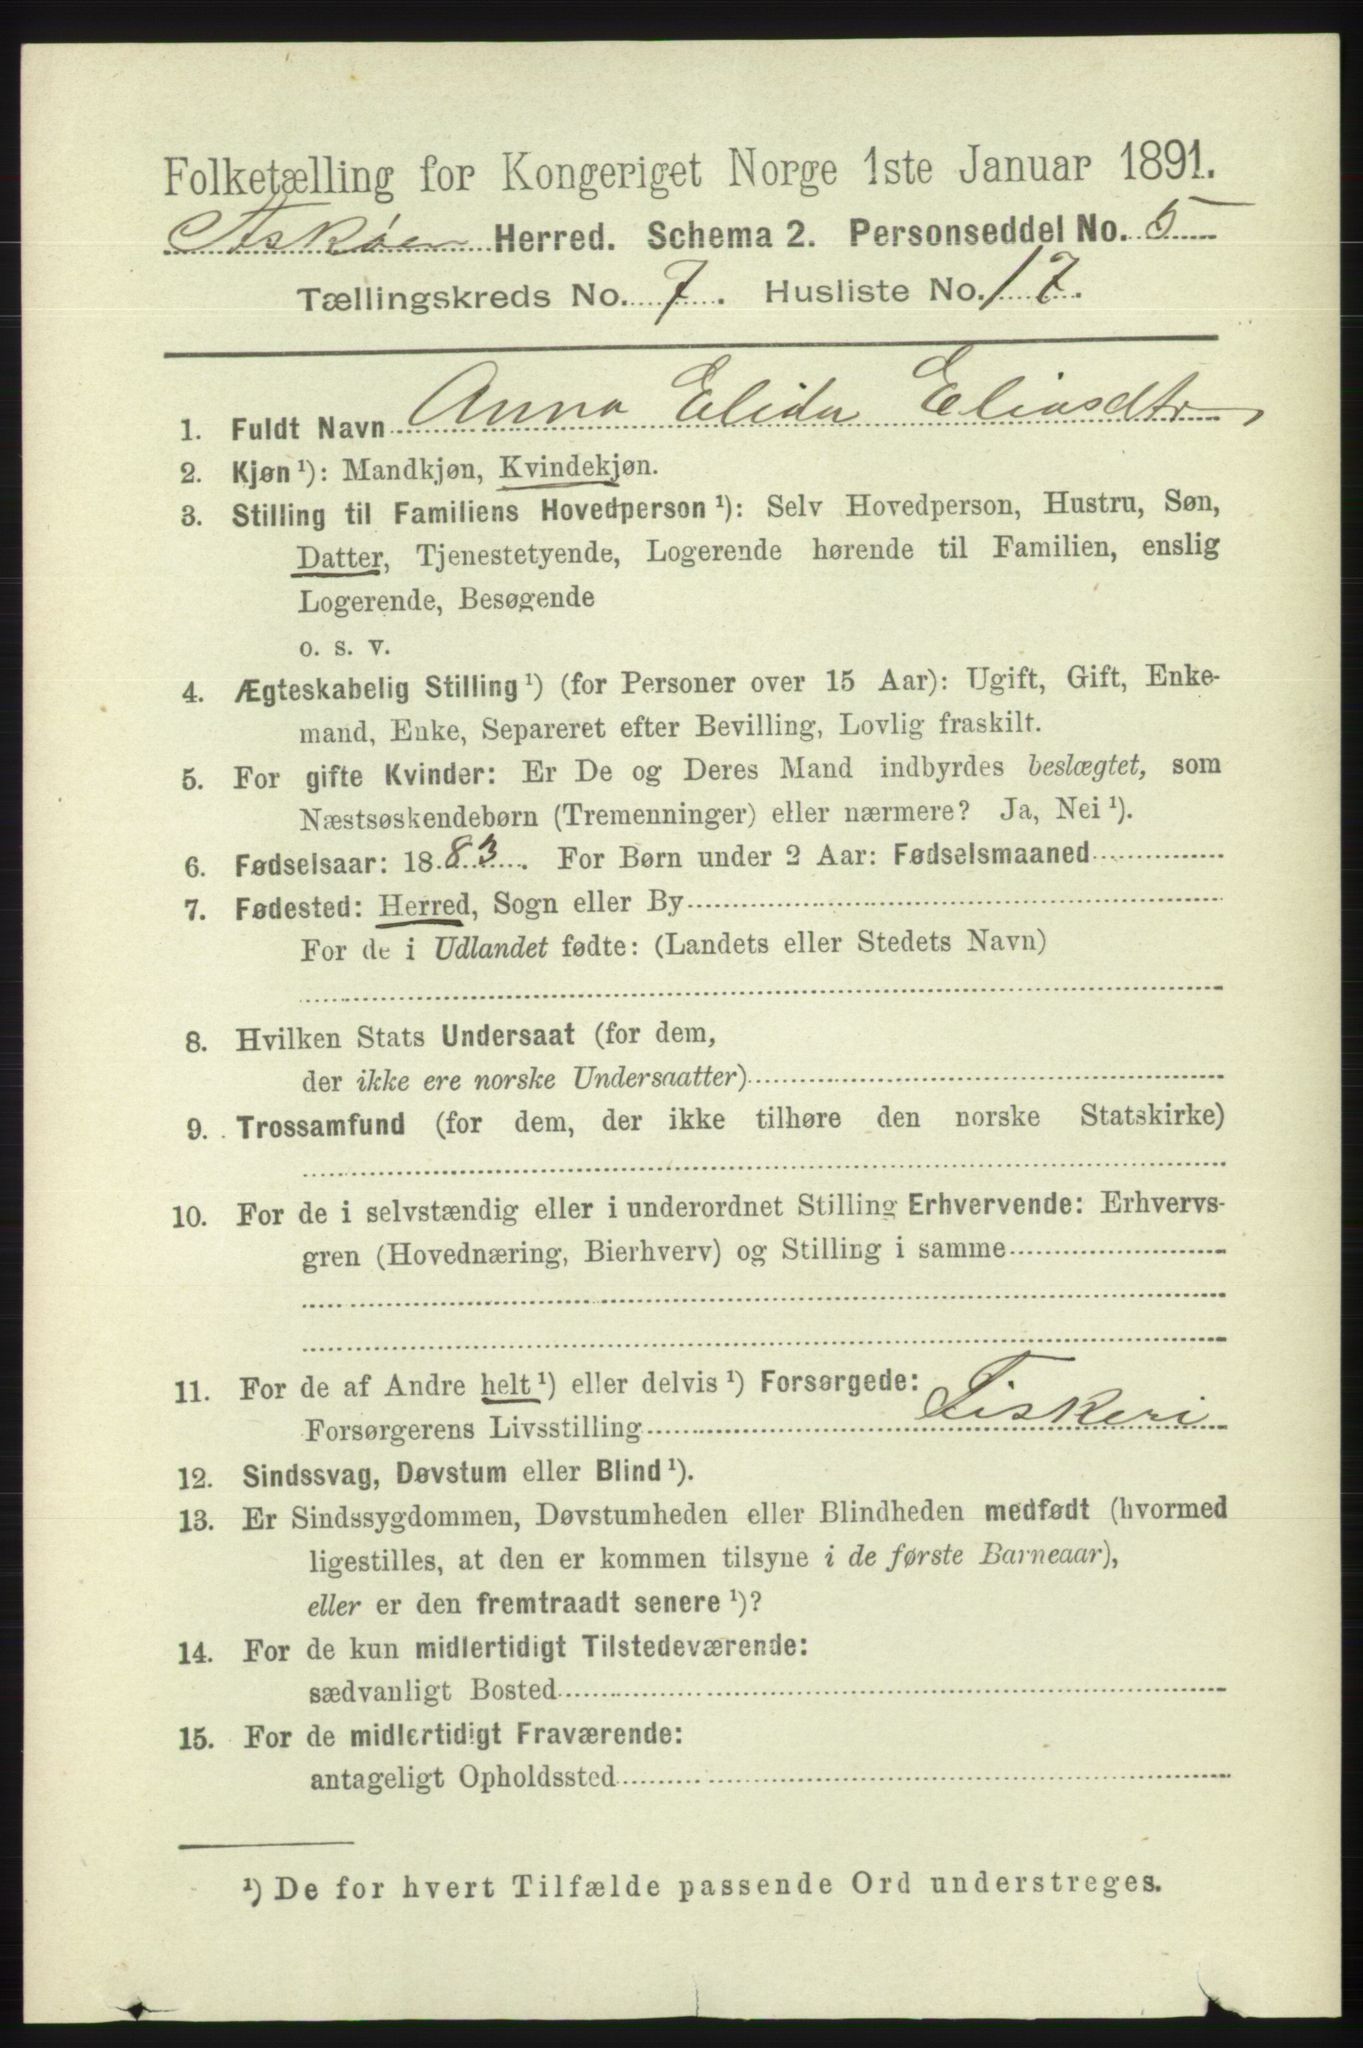 Folketælling for Kongeriget Norge 1ste Januar 1891.
Askøen Herred. Schema 2. Personseddel No. 5
Tællingskreds No. 7. Husliste No. 17.
1. Fuldt Navn Anna Elida Eliasdtr
2. Kjøn ¹): Mandkjøn, Kvindekjøn.
3. Stilling til Familiens Hovedperson ¹): Selv Hovedperson, Hustru, Søn,
Datter, Tjenestetyende, Logerende hørende til Familien, enslig
Logerende, Besøgende
o. s. v.
4. Ægteskabelig Stilling ¹) (for Personer over 15 Aar): Ugift, Gift, Enke-
mand, Enke, Separeret efter Bevilling, Lovlig fraskilt.
5. For gifte Kvinder: Er De og Deres Mand indbyrdes beslægtet, som
Næstsøskendebørn (Tremenninger) eller nærmere? Ja, Nei ¹).
6. Fødselsaar: 1883. For Børn under 2 Aar: Fødselsmaaned
7. Fødested: Herred, Sogn eller By
For de i Udlandet fødte: (Landets eller Stedets Navn)
8. Hvilken Stats Undersaat (for dem,
der ikke ere norske Undersaatter)
9. Trossamfund (for dem, der ikke tilhøre den norske Statskirke)
10. For de i selvstændig eller i underordnet Stilling Erhvervende: Erhvervs-
gren (Hovednæring, Bierhverv) og Stilling i samme
11. For de af Andre helt ¹) eller delvis ¹) Forsørgede:
Forsørgerens Livsstilling Fiskeri
12. Sindssvag, Døvstum eller Blind ¹).
13. Er Sindssygdommen, Døvstumheden eller Blindheden medfødt (hvormed
ligestilles, at den er kommen tilsyne i de første Barneaar),
eller er den fremtraadt senere ¹)?
14. For de kun midlertidigt Tilstedeværende:
sædvanligt Bosted
15. For de midlertidigt Fraværende:
antageligt Opholdssted
¹) De for hvert Tilfælde passende Ord understreges.